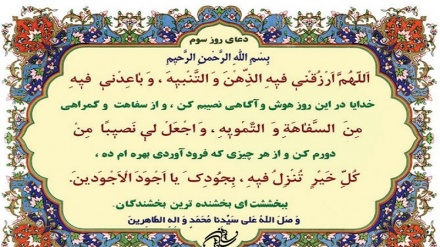 دعای روز سوم
بِسْمِ اللهِ الرَّحْمنِ الرَّحِیمِ
اَللّهُمَّ ارْزُقْني فيهِ الذِّهْنَ وَ التَّنْبيهَ ، وَ باعِدْني فيهِ
خدایا در این روز هوش و آگاهی نصیبم کن ، و از سفاهت و گمراهی
مِنَ السَّفاهَةِ وَ التَّمْويهِ ، وَ اجْعَلْ لي نَصيبًا مِنْ
دورم کن و از هر چیزی که فرود آوردی بهره ام ده ،
كُلِّ خَيْرٍ تُنْزِلُ فيهِ ، بِجُودِكَ يا اَجْوَدَ الْاَجْوَدينَ.
ببخششت ای بخشنده ترین بخشندگان.
وَ صَلَّ اللهُ عَلی سَیِّدِنا مُحَمَّدٍ وَ الهِ الطّاهِرینَ